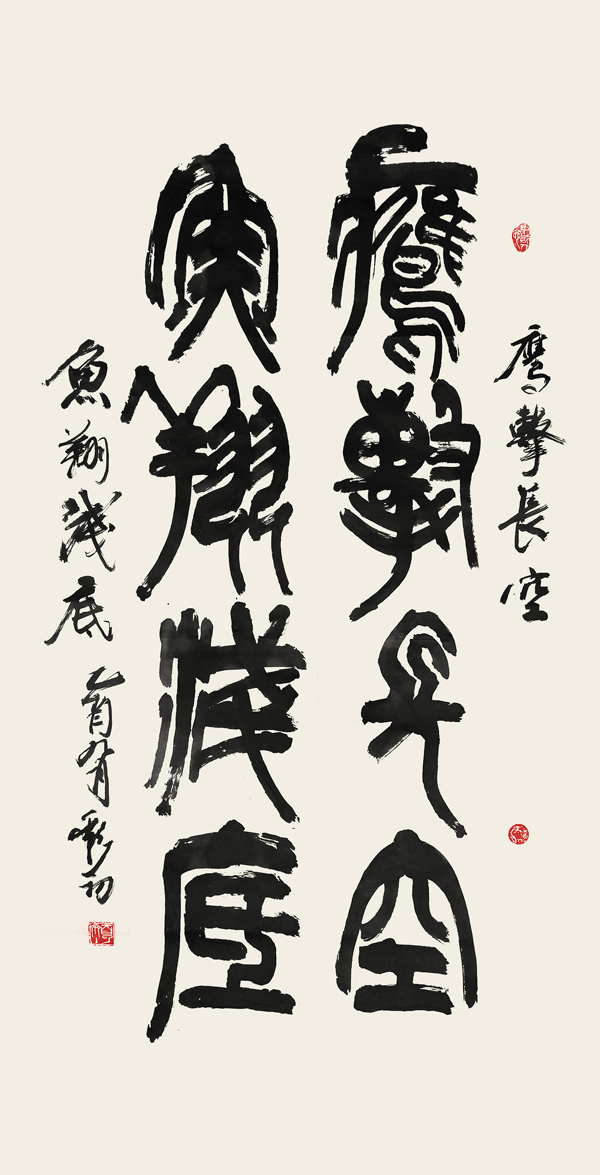 鷹擊長空
鷹擊長空
魚翔淺底
魚翔淺底 乙酉九月